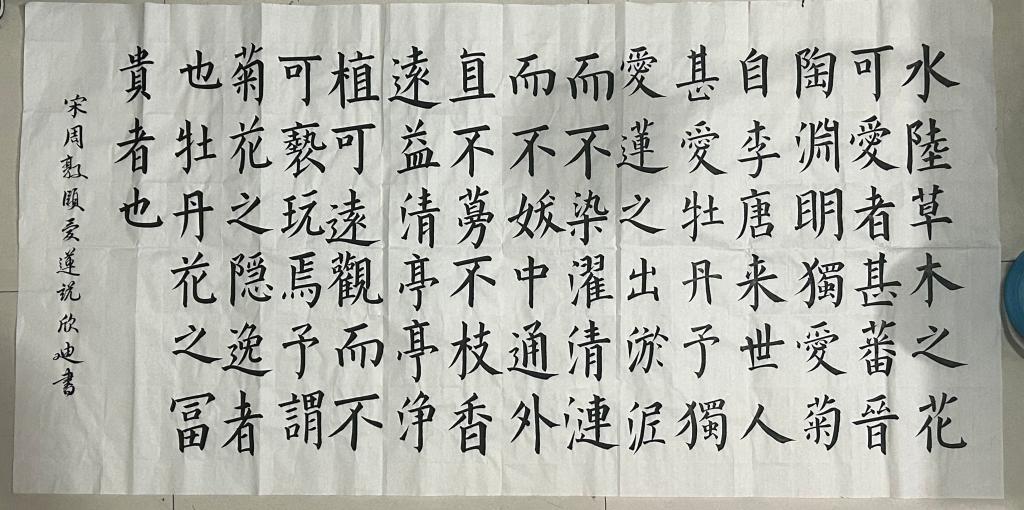 水陸草木之花
可愛者甚蕃晉
陶淵明獨愛菊
自李唐来世人
甚愛牡丹予獨
愛蓮之出淤泥
而不染濯清漣
而不妖中通外
直不蔓不枝香
遠益清亭亭浄
植可遠觀而不
可褻玩焉予謂
菊花之隐逸者
也牡丹花之冨
貴者也
宋周敦頤爱蓮説欣迪書